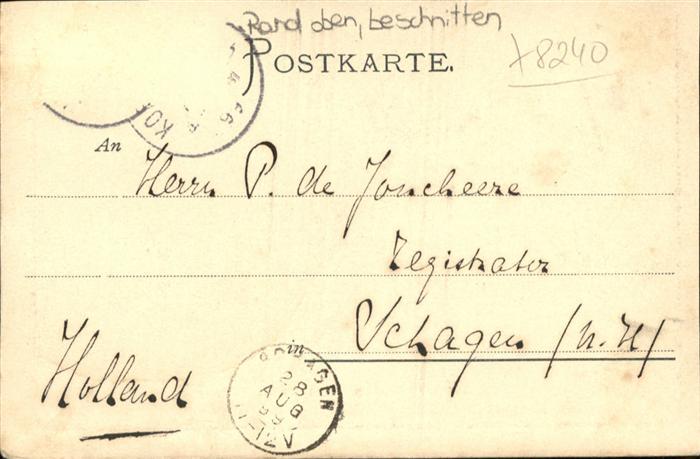 Rand oben, beschnitten
POSTKARTE.
78240
An
Herrn P. de Joncheere
Registrator
in Schagen (N. H)
Holland
SCHAGEN
28
AUG
99
11-12V
KO